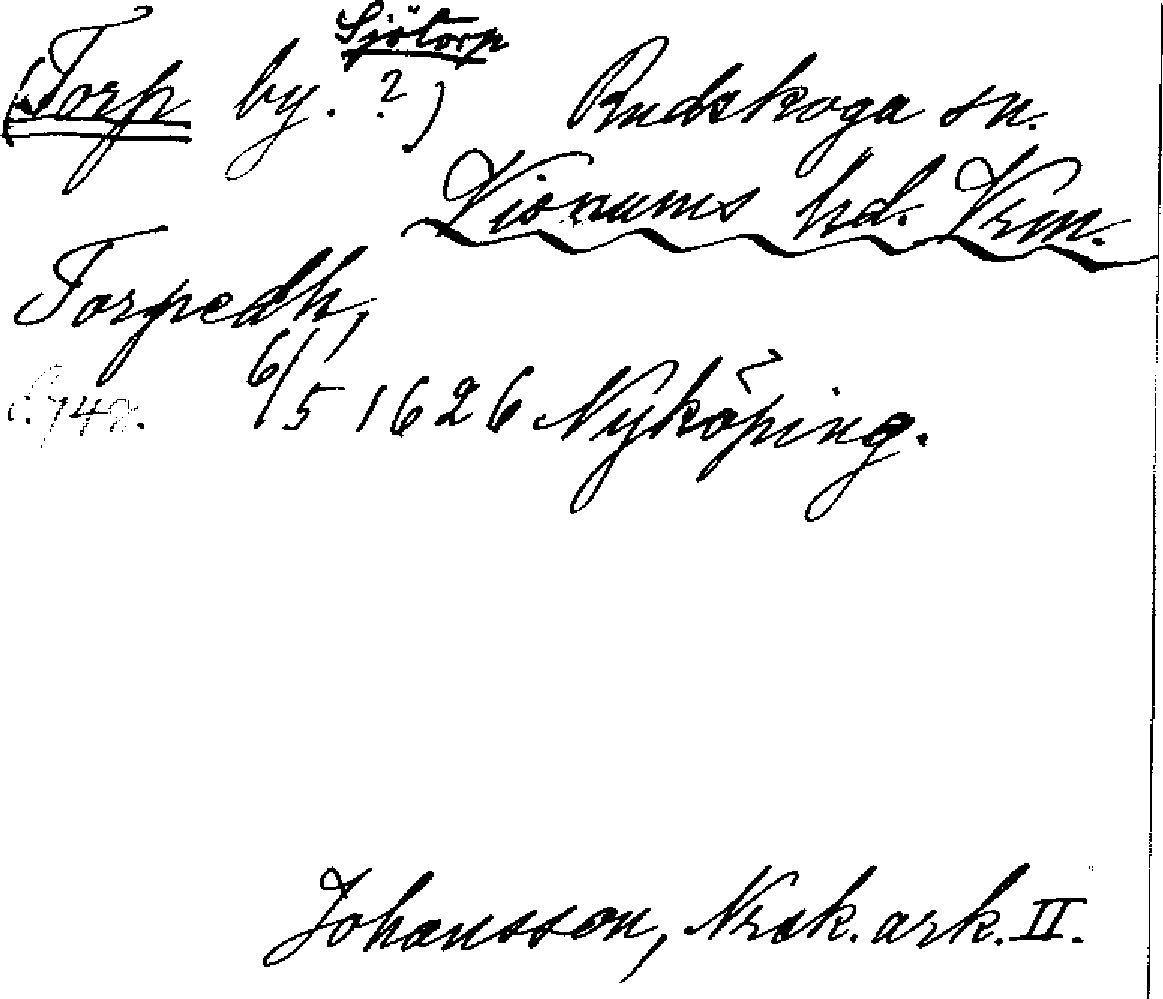 Sjötorp
(Torp by. ?) Rudskoga sn.
Visnums hd. Vrm.
Torpedh,
s. 748. 6/5 1626 Nyköping.
Johansson, Nrsk. ark. II.